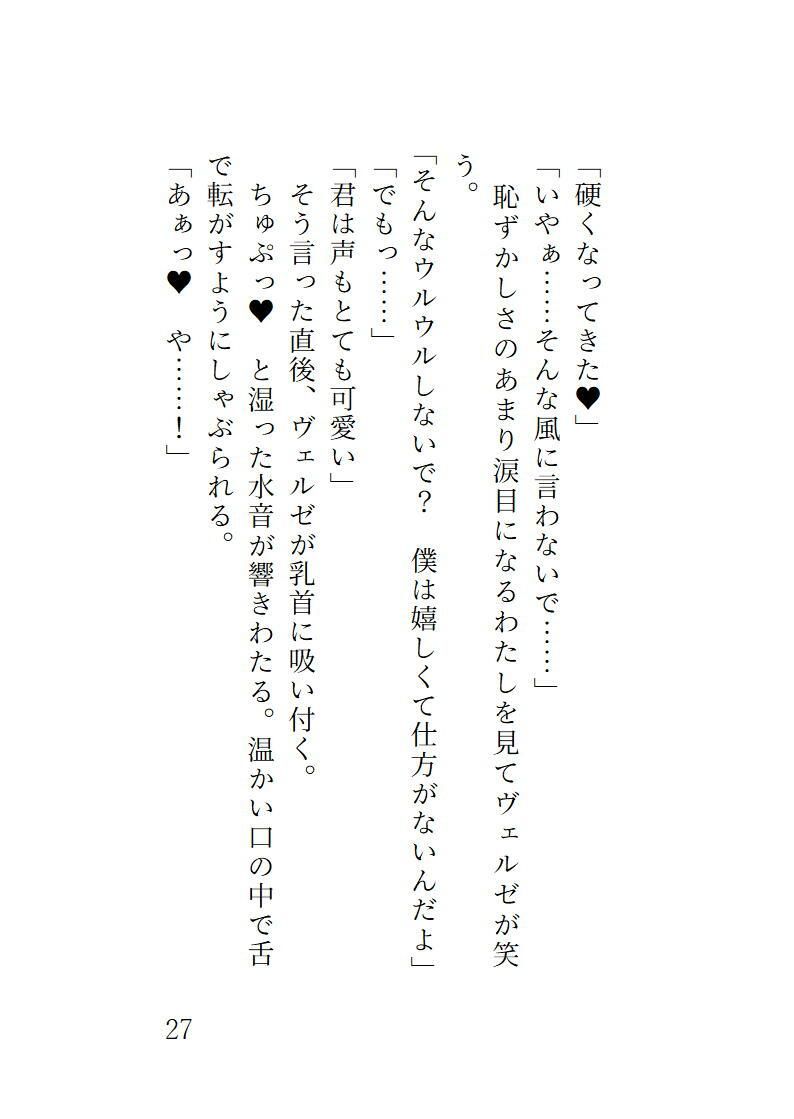 「硬くなってきた♥」
「いやぁ……そんな風に言わないで……」
　恥ずかしさのあまり涙目になるわたしを見てヴェルゼが笑
う。
「そんなウルウルしないで？　僕は嬉しくて仕方がないんだよ」
「でもっ……」
「君は声もとても可愛い」
　そう言った直後、ヴェルゼが乳首に吸い付く。
　ちゅぷっ♥　と湿った水音が響きわたる。温かい口の中で舌
で転がすようにしゃぶられる。
「あぁっ♥　や……！」
27